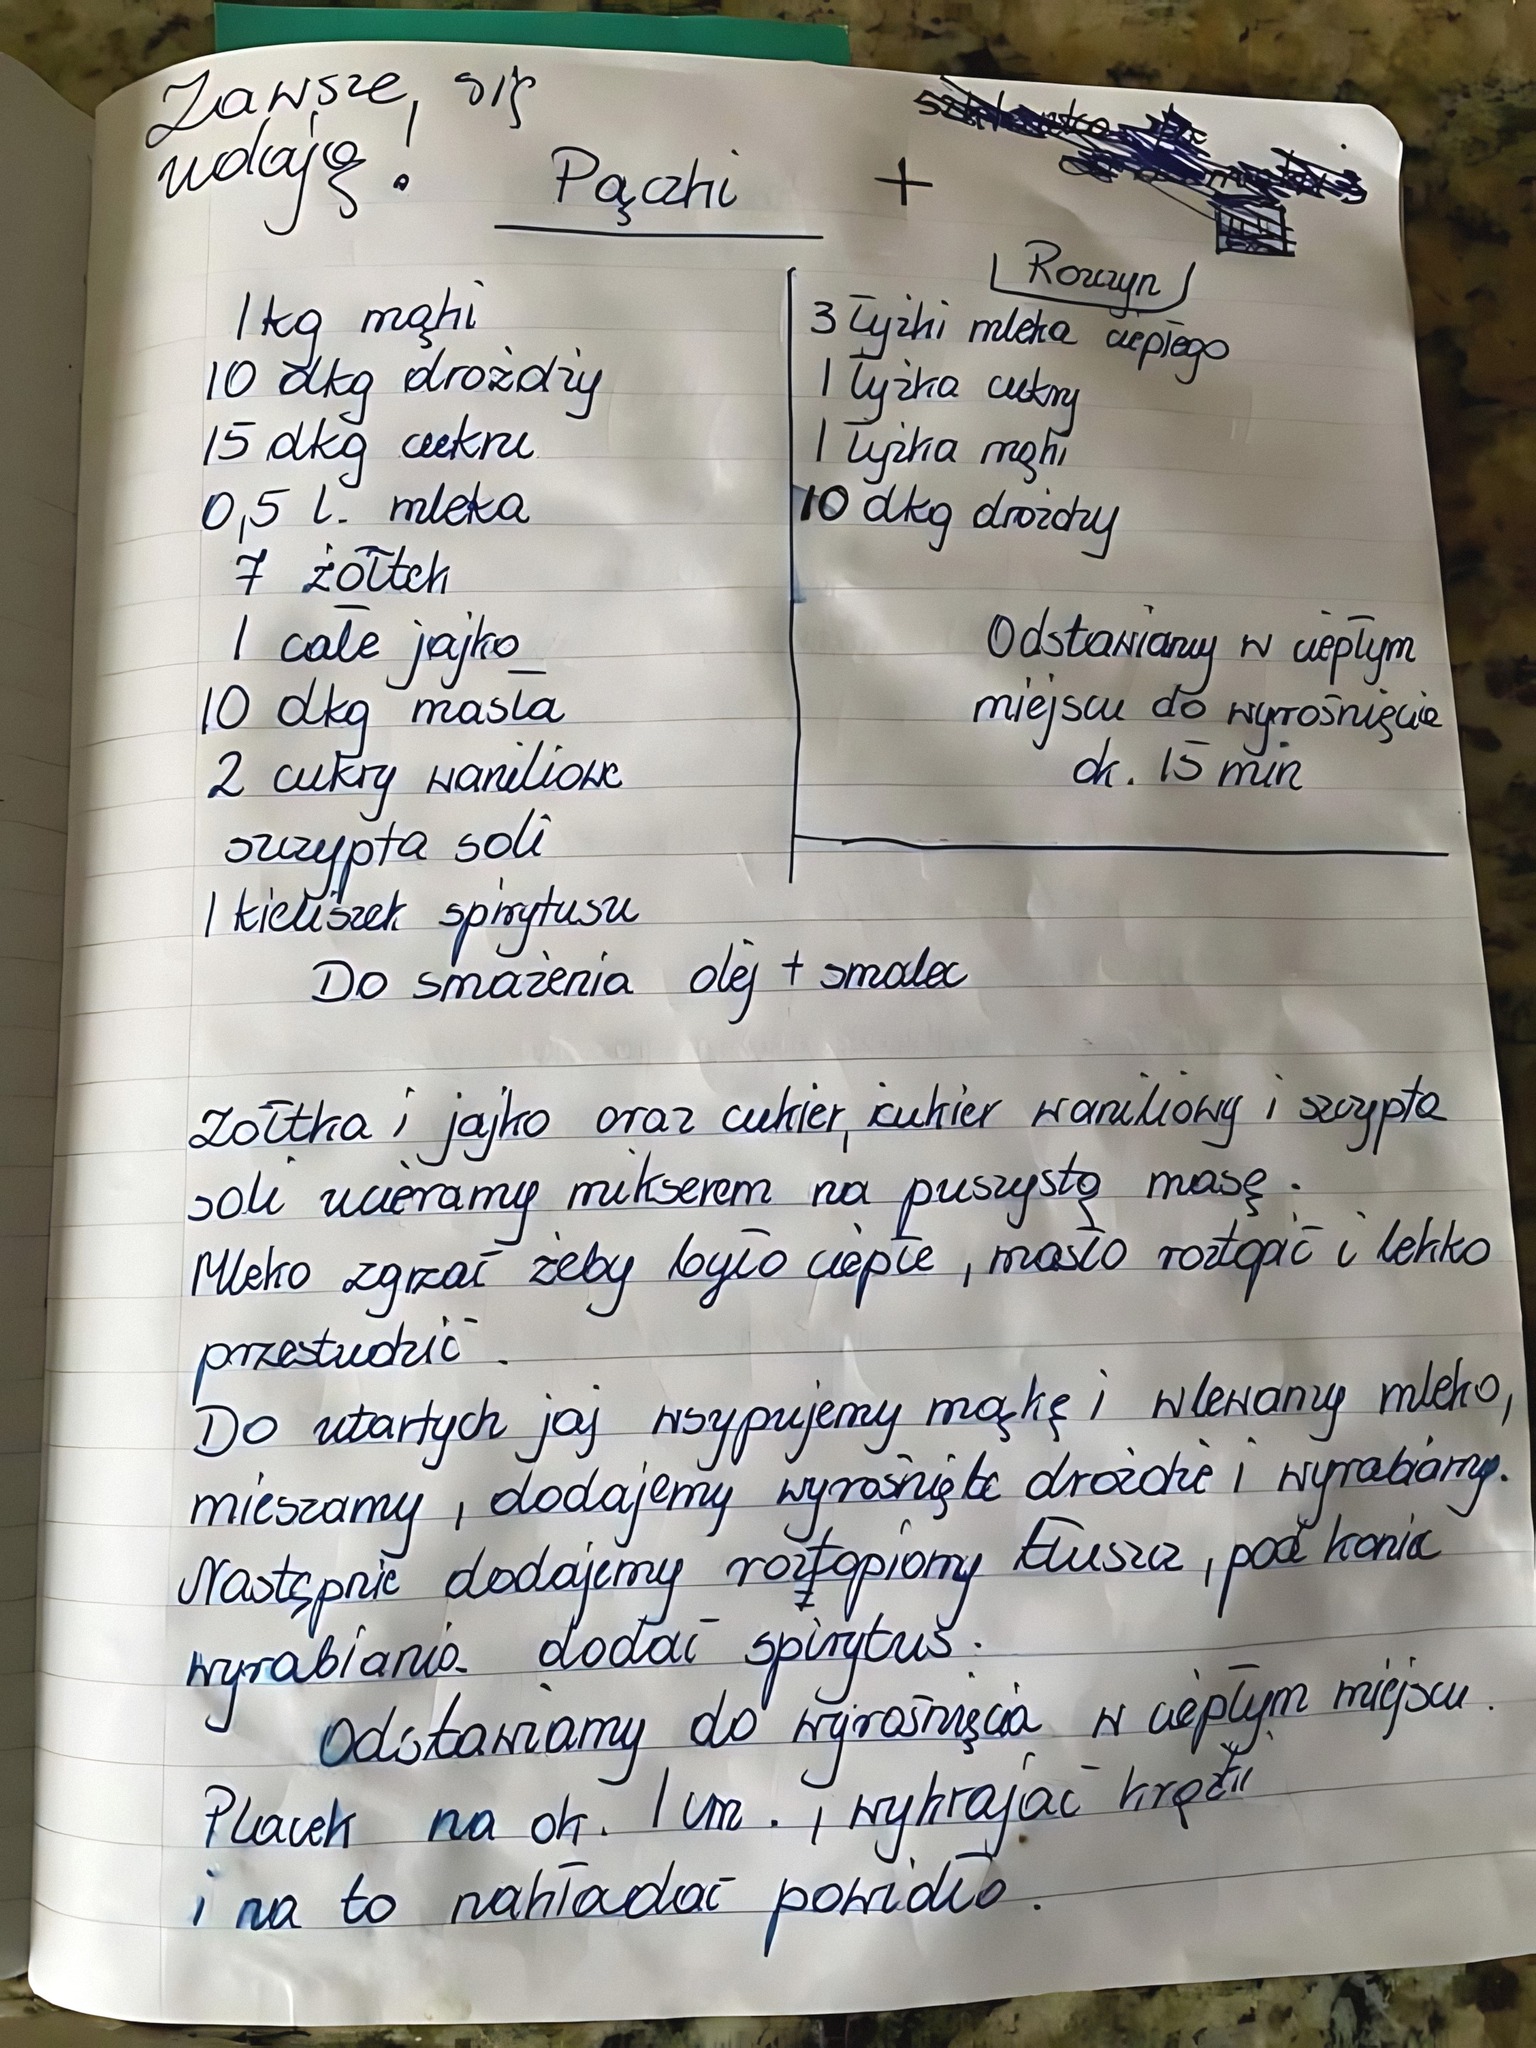 Zawsze, się
udają!
Pączki +
1 kg mąki
10 dkg drożdży
15 dkg cukru
0,5 l. mleka
7 żółtek
1 całe jajko
10 dkg masła
2 cukry waniliowe
szczypta soli
1 kieliszek spirytusu
Do smażenia olej + smalec
Rozczyn
3 łyżki mleka ciepłego
1 łyżka cukry
1 łyżka mąki
10 dkg drożdży
Odstawiamy w ciepłym
miejscu do wyrośnięcia
ok. 15 min
Żółtka i jajko oraz cukier, cukier waniliowy i szczypta
soli ucieramy mikserem na puszystą masę.
Mleko zgrzać żeby było ciepłe, masło roztopić i lekko
przestudzić.
Do utartych jaj wsypujemy mąkę i wlewamy mleko,
mieszamy, dodajemy wyrośnięte drożdże i wyrabiamy.
Następnie dodajemy roztopiony tłuszcz, pod koniec
wyrabiania dodać spirytus.
Odstawiamy do wyrośnięcia w ciepłym miejscu.
Placek na ok. 1 cm., wykrajać krążki
i na to nakładać powidło.